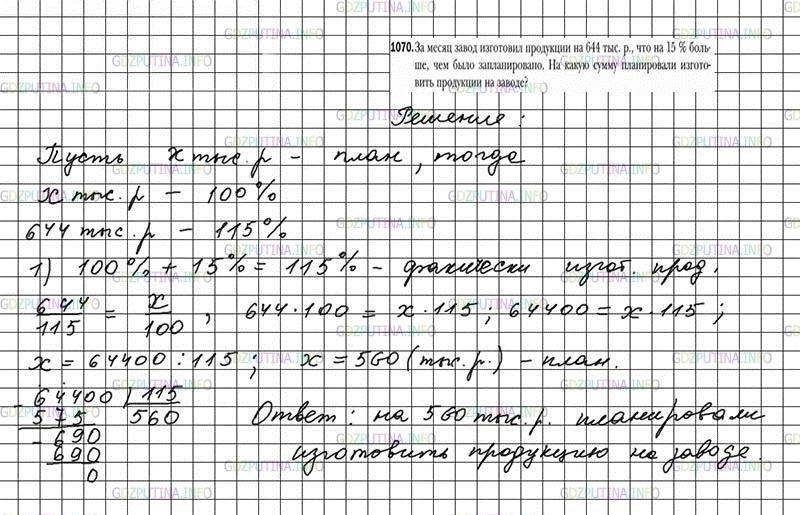 1070. За месяц завод изготовил продукции на 644 тыс. р., что на 15 % боль-
ше, чем было запланировано. На какую сумму планировали изгото-
вить продукции на заводе?
Решение:
Пусть х тыс. р – план, тогда
х тыс. р – 100%
644 тыс. р – 115%
1) 100% + 15% = 115% – фактически изгот. прод.
644/115 = х/100, 644·100 = х·115; 64400 = х·115;
х = 64400 : 115; х = 560 (тыс. р.) – план.
64400 | 115
575 560
- 690
690
0
Ответ: на 560 тыс. р. планировали
изготовить продукцию на заводе.
GDZPUTINA.INFO